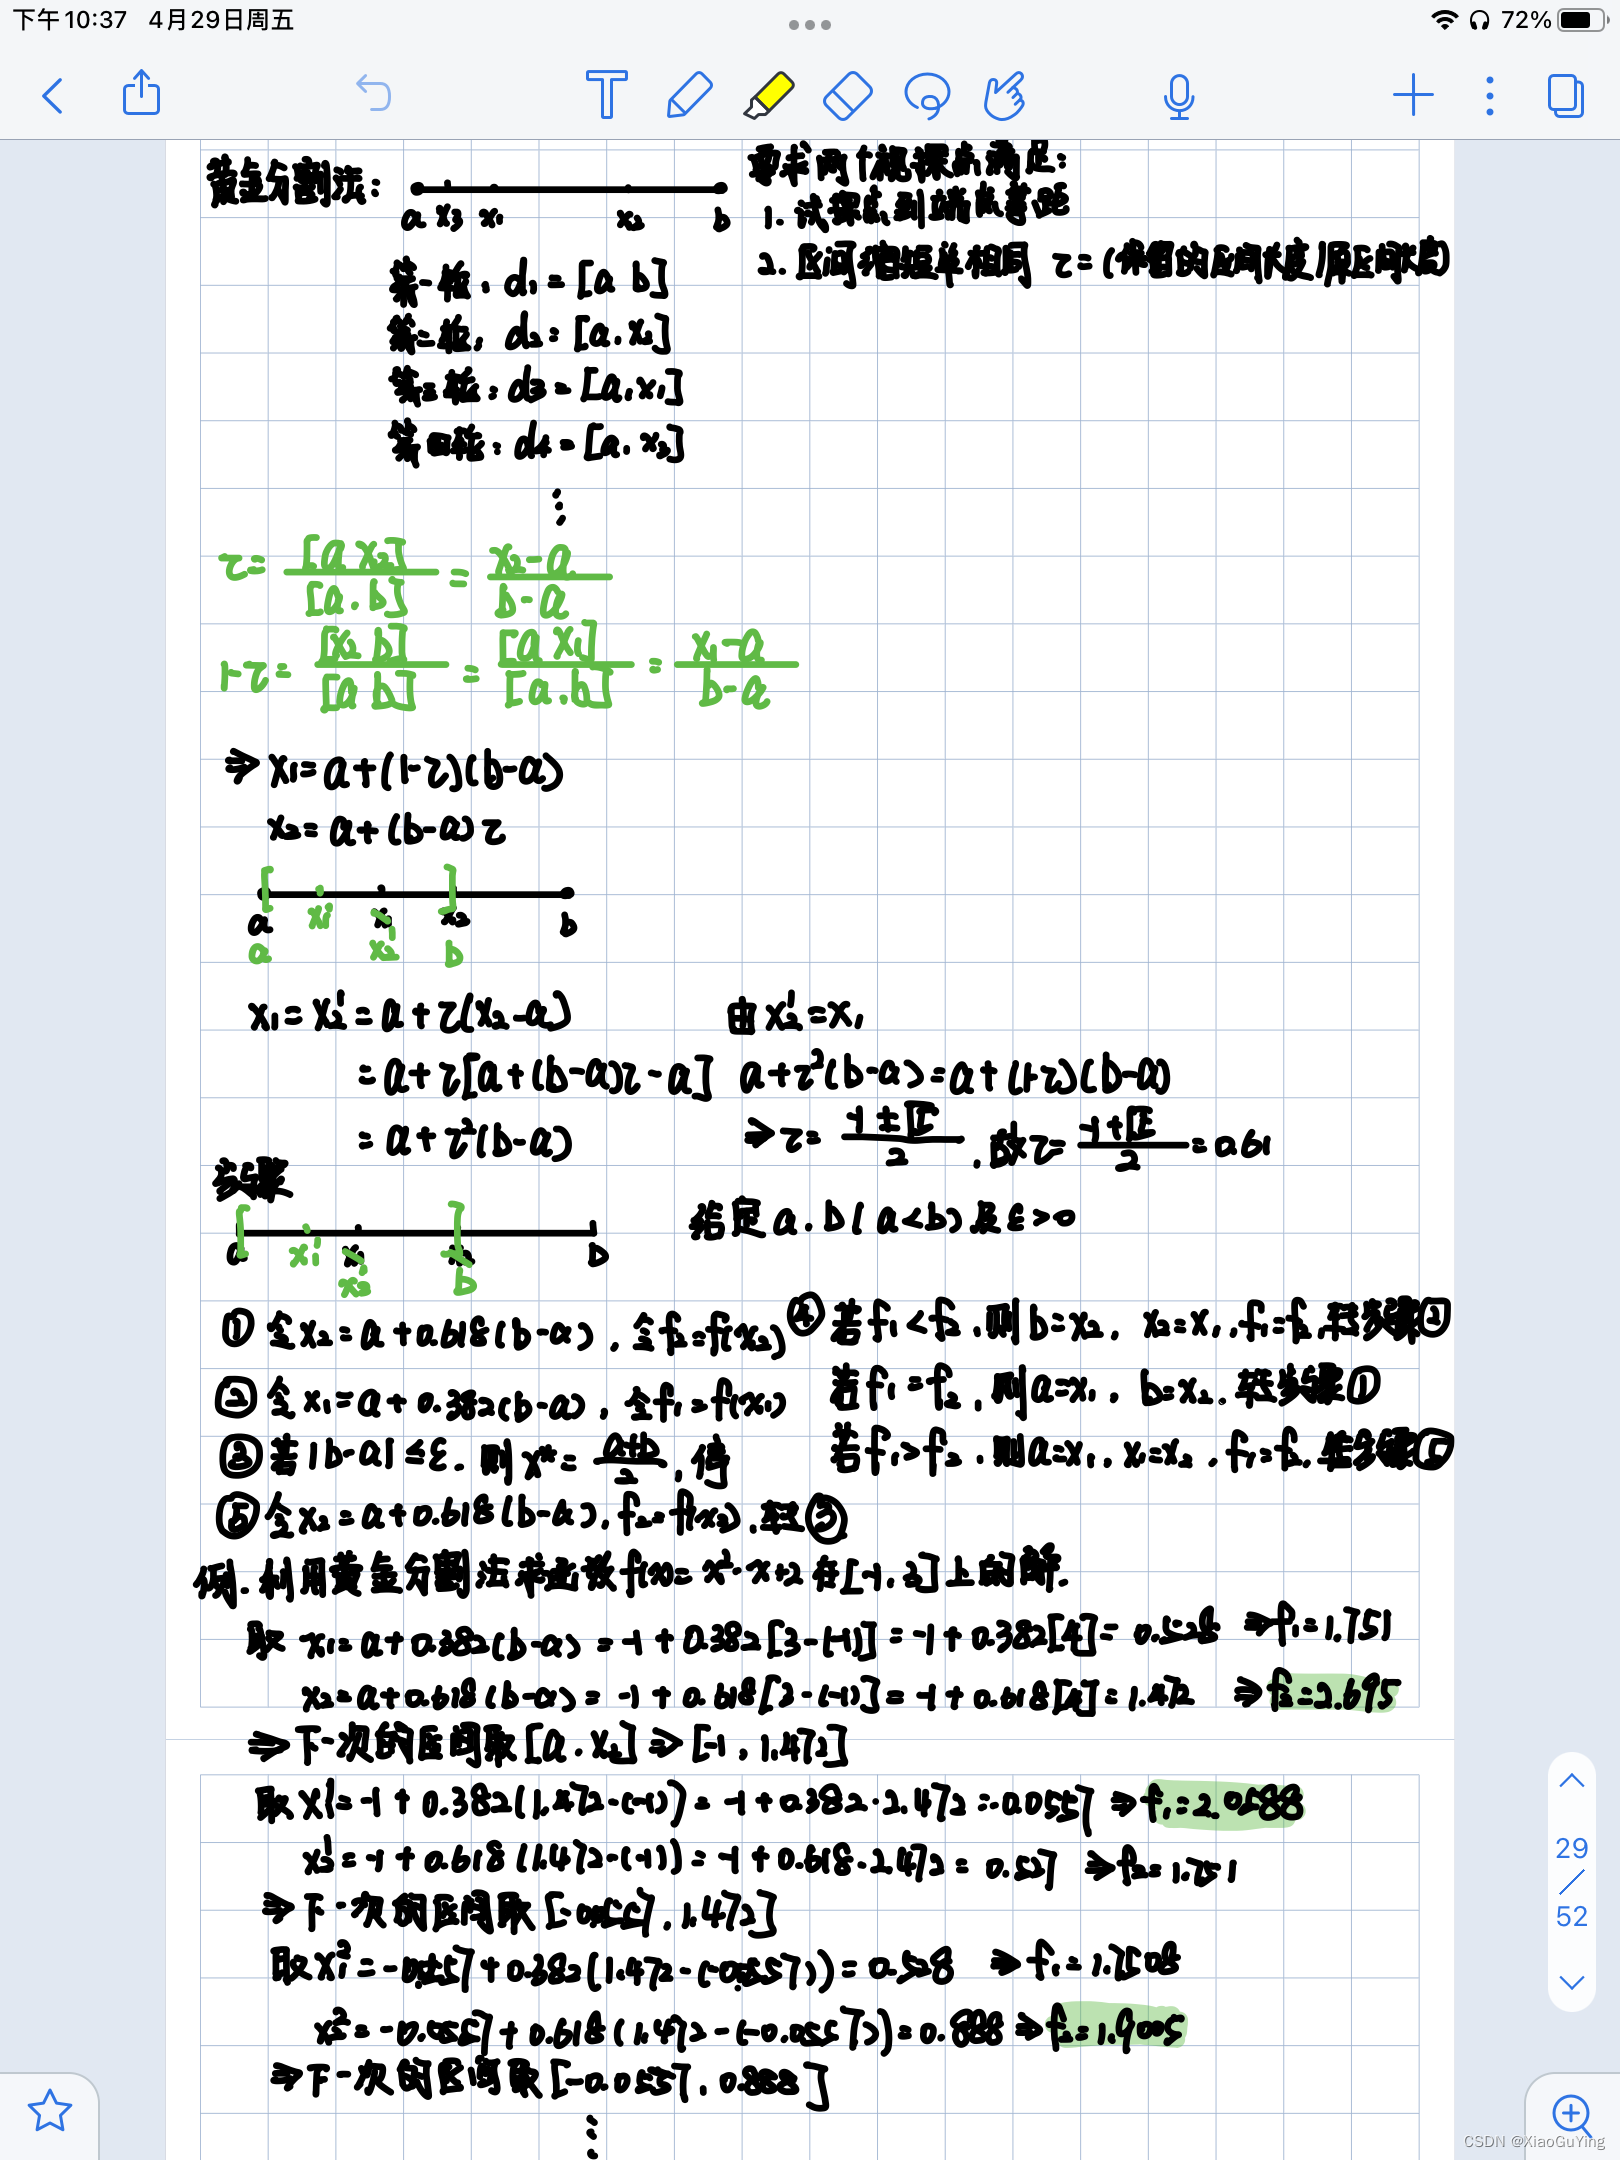 下午10:37 4月29日周五
72%
黄金分割法:
a x3 x1 x2 b
要求两个试探点满足:
1. 试探点到端点等距
2. 区间缩短率相同 τ=(保留的区间长度/原区间长度)
第一轮: d1 = [a b]
第二轮: d2 = [a. x2]
第三轮: d3 = [a. x1]
第四轮: d4 = [a. x3]
⋮
τ = [a x2]/[a. b] = (x2-a)/(b-a)
1-τ = [x2 b]/[a b] = [a x1]/[a.b] = (x1-a)/(b-a)
⇒ x1 = a+(1-τ)(b-a)
x2 = a+(b-a)τ
a x1 x2 b
a x1' x2' b
x1 = x2' = a+τ(x2-a)
= a+τ[a+(b-a)τ-a]
= a+τ²(b-a)
由 x2' = x1
a+τ²(b-a) = a+(1-τ)(b-a)
⇒ τ = (-1±√5)/2 . 故τ = (-1+√5)/2 = 0.61
步骤
a x1' x2' b b
给定 a. b (a<b) 及 ε>0
① 令 x2 = a+0.618(b-a), 令f2=f(x2)
② 令 x1 = a+0.382(b-a), 令f1=f(x1)
③ 若 |b-a| ≤ε. 则 x* = (a+b)/2, 停
④ 若 f1<f2. 则 b=x2, x2=x1, f1=f2, 转步骤②
若 f1=f2, 则a=x1, b=x2. 转步骤①
若 f1>f2. 则a=x1, x1=x2, f1=f2, 转步骤⑤
⑤ 令 x2 = a+0.618(b-a), f2=f(x2), 转③
例. 利用黄金分割法求函数f(x)= x²-x+2 在[-1, 3]上的解.
取 x1=a+0.382(b-a) = -1+0.382[3-(-1)] = -1+0.382[4]= 0.528 ⇒f1=1.751
x2=a+0.618(b-a) = -1+0.618[3-(-1)] = -1+0.618[4]=1.472 ⇒f2=2.695
⇒下一次的区间取 [a. x2] ⇒ [-1, 1.472]
取 x1'=-1+0.382(1.472-(-1)) = -1+0.382·2.472 =-0.0557 ⇒f1=2.0588
x2'=-1+0.618(1.472-(-1)) = -1+0.618·2.472 = 0.527 ⇒f2=1.751
⇒下一次的区间取[-0.0557, 1.472]
取x1²=-0.0557+0.382(1.472-(-0.0557)) = 0.528 ⇒ f1=1.7508
x2²=-0.0557+0.618(1.472-(-0.0557)) = 0.888 ⇒f2=1.9005
⇒下一次的区间取[-0.0557, 0.888]
⋮
29
52
CSDN @XiaoGuYing